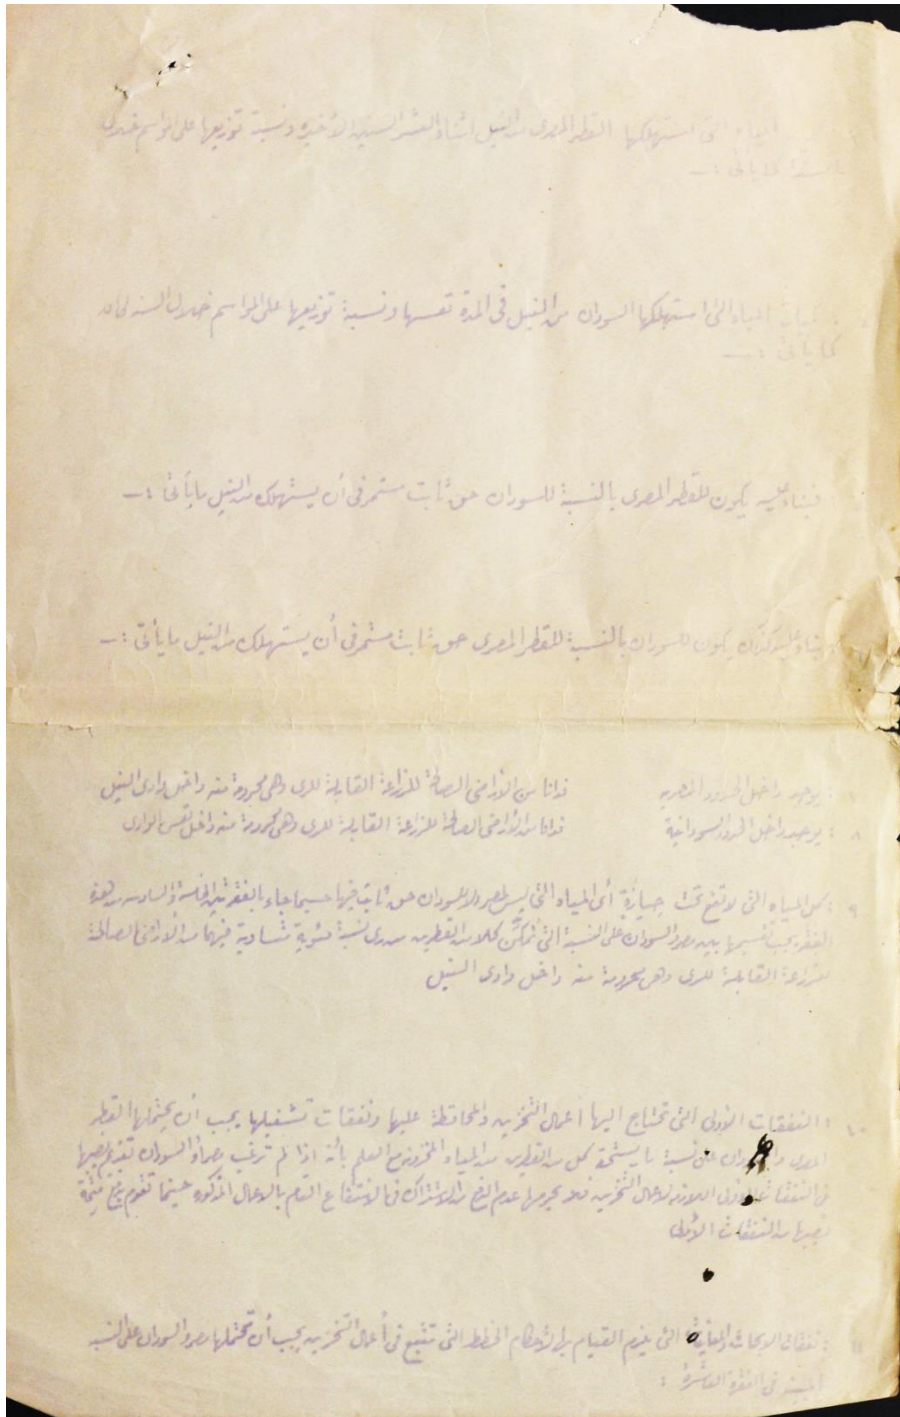 المياه التى استهلكها القطر المصرى من النيل اثناء العشر السنين الأخيرة ونسبة توزيعها على المواسم خلال
السنة كما يأتى :ـ
كميات المياه التى استهلكها السودان من النيل فى المدة نفسها ونسبة توزيعها على المواسم خلال السنة كان
كما يأتى :ـ
فبناء عليه يكون للقطر المصرى بالنسبة للسودان حق ثابت مستمر فى أن يستهلك من النيل ما يأتى :ـ
بناء عليه كذلك يكون للسودان بالنسبة للقطر المصرى حق ثابت مستمر فى أن يستهلك من النيل ما يأتى :ـ
: يوجد داخل الحدود المصرية فدانا من الاراضى الصالحة للزراعة القابلة للرى وهى محرومة منه داخل وادى النيل
٨ : يوجد داخل الحدود السودانية فدانا من الأراضى الصالحة للزراعة القابلة للرى وهى محرومة منه داخل نفس الوادى
٩ : كل المياه التى لا تقع تحت حيازة أى المياه التى ليس لمصر ولا للسودان حق ثابت فيها حسبما جاء بالفقرتين الخامسة والسادسة من هذه
يجب تقسيمها بين مصر والسودان على النسبة التى تمكن كلا من القطرين من رى نسبة مئوية متساوية فيهما من الأراضى الصالحة
للزراعة القابلة للرى وهى محرومة منه داخل وادى النيل
١٠ : النفقات الأولى التى تحتاج اليها أعمال التخزين والمحافظة عليها ونفقات تشغيلها يجب أن يحتملها القطر
المصرى على نسبة ما يستحق كل من القطرين من المياه المخزونة مع العلم بأنه اذا لم ترغب مصر أو السودان نصيبها
فى النفقات الأولى اللازمة لأعمال التخزين فلا يحرمها عدم الدفع من الاشتراك فى الانتفاع التام بالاعمال المذكورة حينما تقوم بدفع قيمة
نصيبها من النفقات الأولى
١١ : نفقات الابحاث التى يلزم القيام بها لأحكام الخطط التى تتبع فى أعمال التخزين يجب أن تحتملها مصر والسودان على النسبة
المبينة فى الفقرة العاشرة :